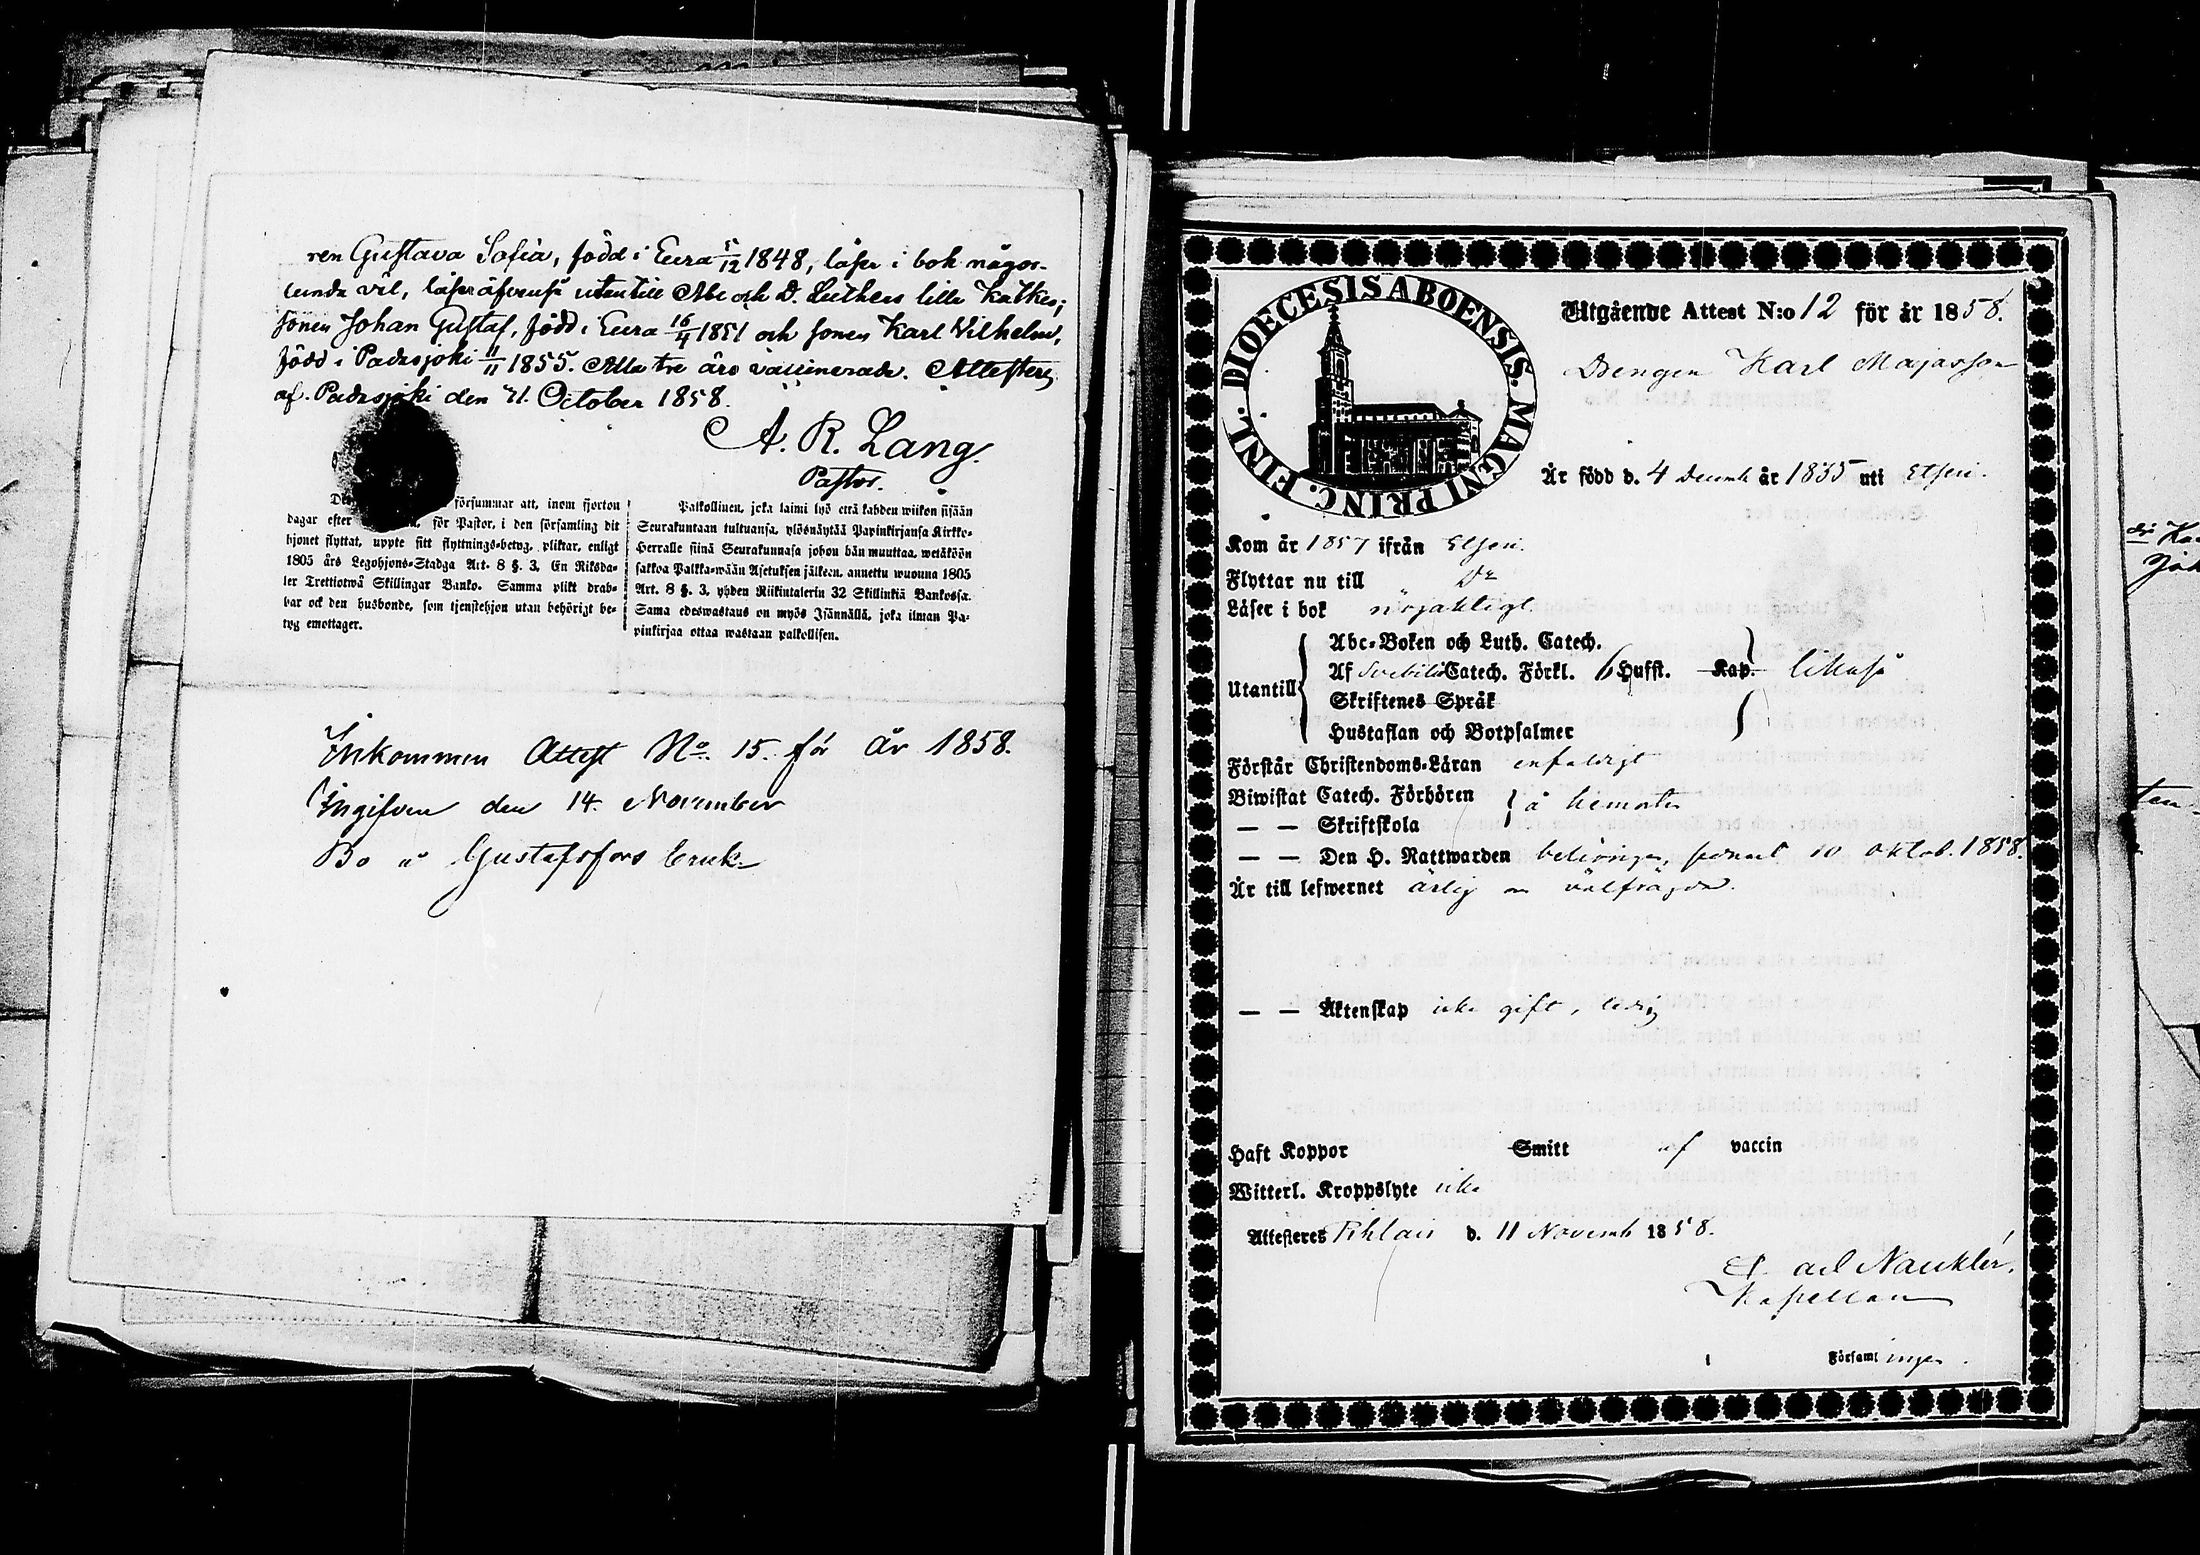 ren Gustava Sofia, född i Eura 5/12 1848, läser i bok någor-
lunda väl, läser äfvenså utantill Abc och D. Luthers lilla Katkes;
sonen Johan Gustaf, född i Eura 16/4 1851 och sonen Karl Vilhelm,
född i Padasjoki 11/11 1855. Alla tre äro vaccinerade. Attesteras
af. Padasjoki den 21. October 1858.
A. R. Lang.
Pastor.
försummar att, inom fjorton
dagar efter för Pastor, i den församling dit
hjonet flyttat, uppte sitt flyttnings-betyg, pliktar, enligt
1805 års Legohjons-Stadga Art. 8 §. 3. En Riksda-
ler Trettiotwå Skillingar Banko. Samma plikt drab-
bar ock den husbonde, som tjenstehjon utan behörigt be-
tyg emottager.
Palkollinen, joka laimi lyö että kahden wiikon sisään
Seurakuntaan tultuansa, ylösnäytää Papinkirjansa Kirkko-
Herralle siinä Seurakunnasa johon hän muuttaa, wetäköön
sakkoa Palkka-wään Asetuksen jälkeen, annettu wuonna 1805
Art. 8 §. 3, yhden Riikintalerin 32 Skillinkiä Bankossa.
Sama edeswastaus on myös Isännällä, joka ilman Pa-
pinkirjaa ottaa wastaan palkollisen.
Inkommen Attest No. 15. för år 1858.
Ingifven den 14. November
Bo å Gustafsfors bruk.
DIOECESIS ABOENSIS. MAGNI PRINC. FINL.
Utgående Attest N:o 12 för år 1858.
Drengen Karl Majasson
Är född d. 4 Decemb år 1835 uti Etseri.
Kom år 1857 ifrån Etseri.
Flyttar nu till Do
Läser i bok nöjaktigt.
Utantill
Abc-Boken och Luth. Catech.
Af Svebilii Catech. Förkl. 6 Hufst. Kap. likaså
Skriftenes Språk
Hustaflan och Botpsalmer
Förstår Christendoms-Läran enfaldigt
Biwistat Catech. Förhören
å hemorten
— — Skriftskola
— — Den H. Nattwarden behörigen, senast 10 Oktob. 1858.
Är till lefwernet ärlig o välfrägdad.
— — Äktenskap icke gift, ledig
Haft Koppor Smitt af vaccin
Witterl. Kroppslyte icke
Attesteres Pihlais d. 11 Novemb 1858.
Carl Nauklér.
Kapellan
Församl ingen.